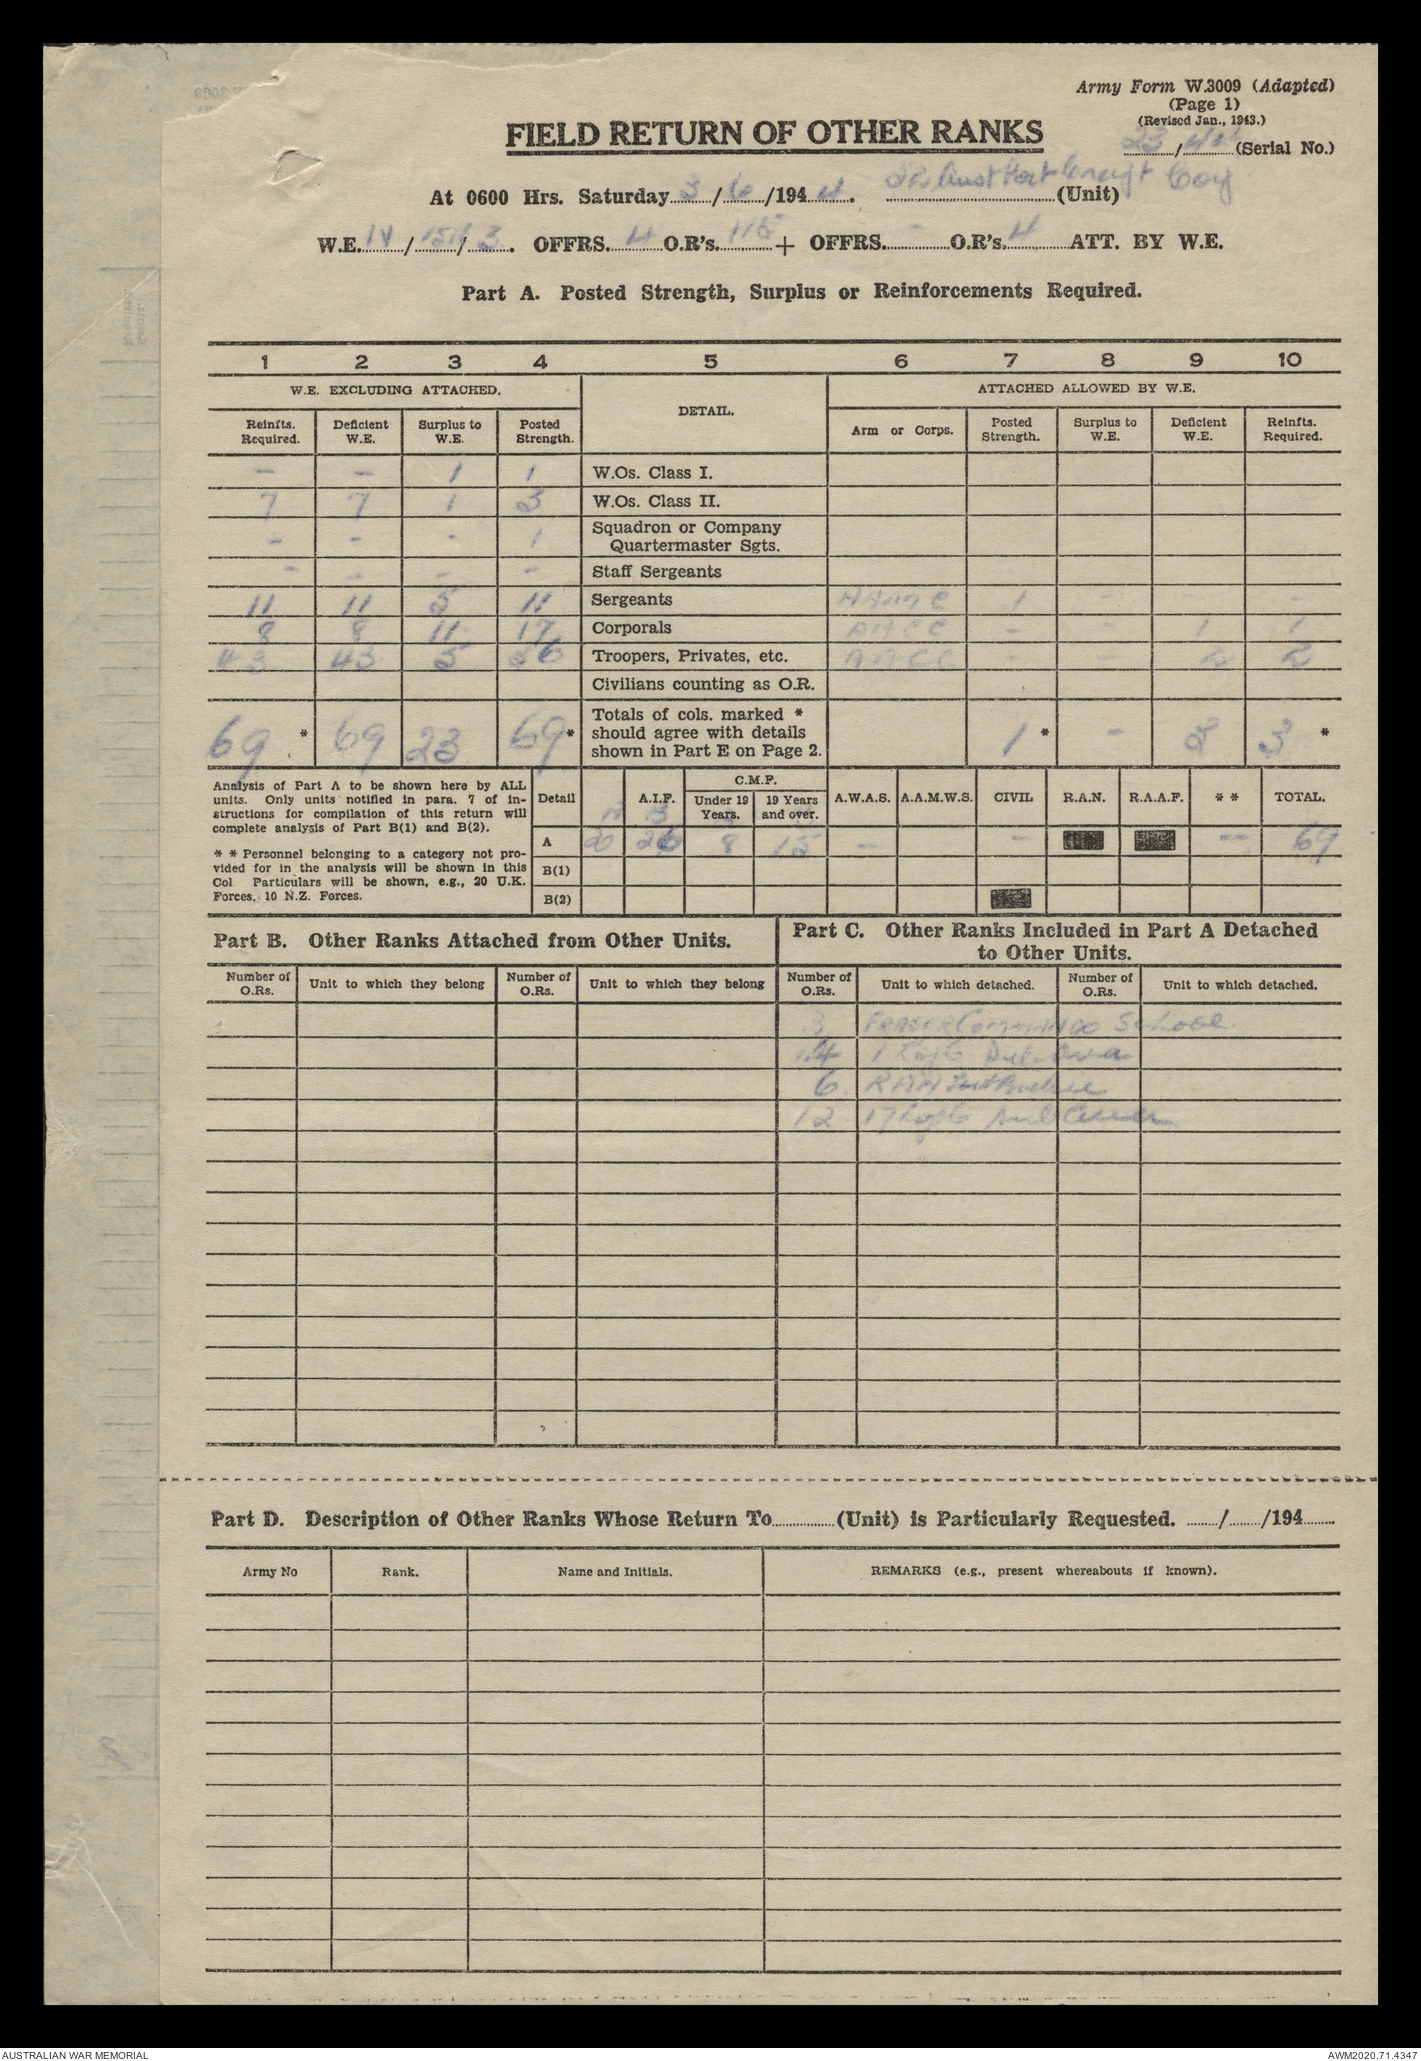 Army Form W.3009 (Adapted)
(Page 1)
(Revised Jan., 1943.)
FIELD RETURN OF OTHER RANKS
23/44 (Serial No.)
At 0600 Hrs. Saturday 3/6/194 4. Aust Port Craft Coy (Unit)
W.E. IV/ / 3. OFFRS. 4 O.R's. 115 + OFFRS. - O.R's. 4 ATT. BY W.E.
Part A. Posted Strength, Surplus or Reinforcements Required.
1 2 3 4 5 6 7 8 9 10
W.E. EXCLUDING ATTACHED. DETAIL. ATTACHED ALLOWED BY W.E.
Reinfts. Required. Deficient W.E. Surplus to W.E. Posted Strength. Arm or Corps. Posted Strength. Surplus to W.E. Deficient W.E. Reinfts. Required.
- - 1 1 W.Os. Class I.
7 7 1 3 W.Os. Class II.
- - - 1 Squadron or Company Quartermaster Sgts.
- - - - Staff Sergeants
11 11 5 11 Sergeants AAMC 1 - - -
8 8 11 17 Corporals AACC - - 1 1
43 43 5 36 Troopers, Privates, etc. AACC - - 2 2
Civilians counting as O.R.
69 * 69 23 69 * Totals of cols. marked * should agree with details shown in Part E on Page 2. 1 * - 3 3 *
Analysis of Part A to be shown here by ALL
units. Only units notified in para. 7 of in-
structions for compilation of this return will
complete analysis of Part B(1) and B(2).
* * Personnel belonging to a category not pro-
vided for in the analysis will be shown in this
Col Particulars will be shown, e.g., 20 U.K.
Forces, 10 N.Z. Forces.
C.M.F.
Detail A.I.F. Under 19 Years. 19 Years and over. A.W.A.S. A.A.M.W.S. CIVIL R.A.N. R.A.A.F. * * TOTAL.
A 20 26 8 15 - - - 69
B(1)
B(2)
Part B. Other Ranks Attached from Other Units.
Part C. Other Ranks Included in Part A Detached
to Other Units.
Number of O.Rs. Unit to which they belong Number of O.Rs. Unit to which they belong Number of O.Rs. Unit to which detached. Number of O.Rs. Unit to which detached.
3 FRASER Commando School
14 1
6.
12. 17
Part D. Description of Other Ranks Whose Return To (Unit) is Particularly Requested. / /194
Army No Rank. Name and Initials. REMARKS (e.g., present whereabouts if known).
AUSTRALIAN WAR MEMORIAL AWM2020.71.4347